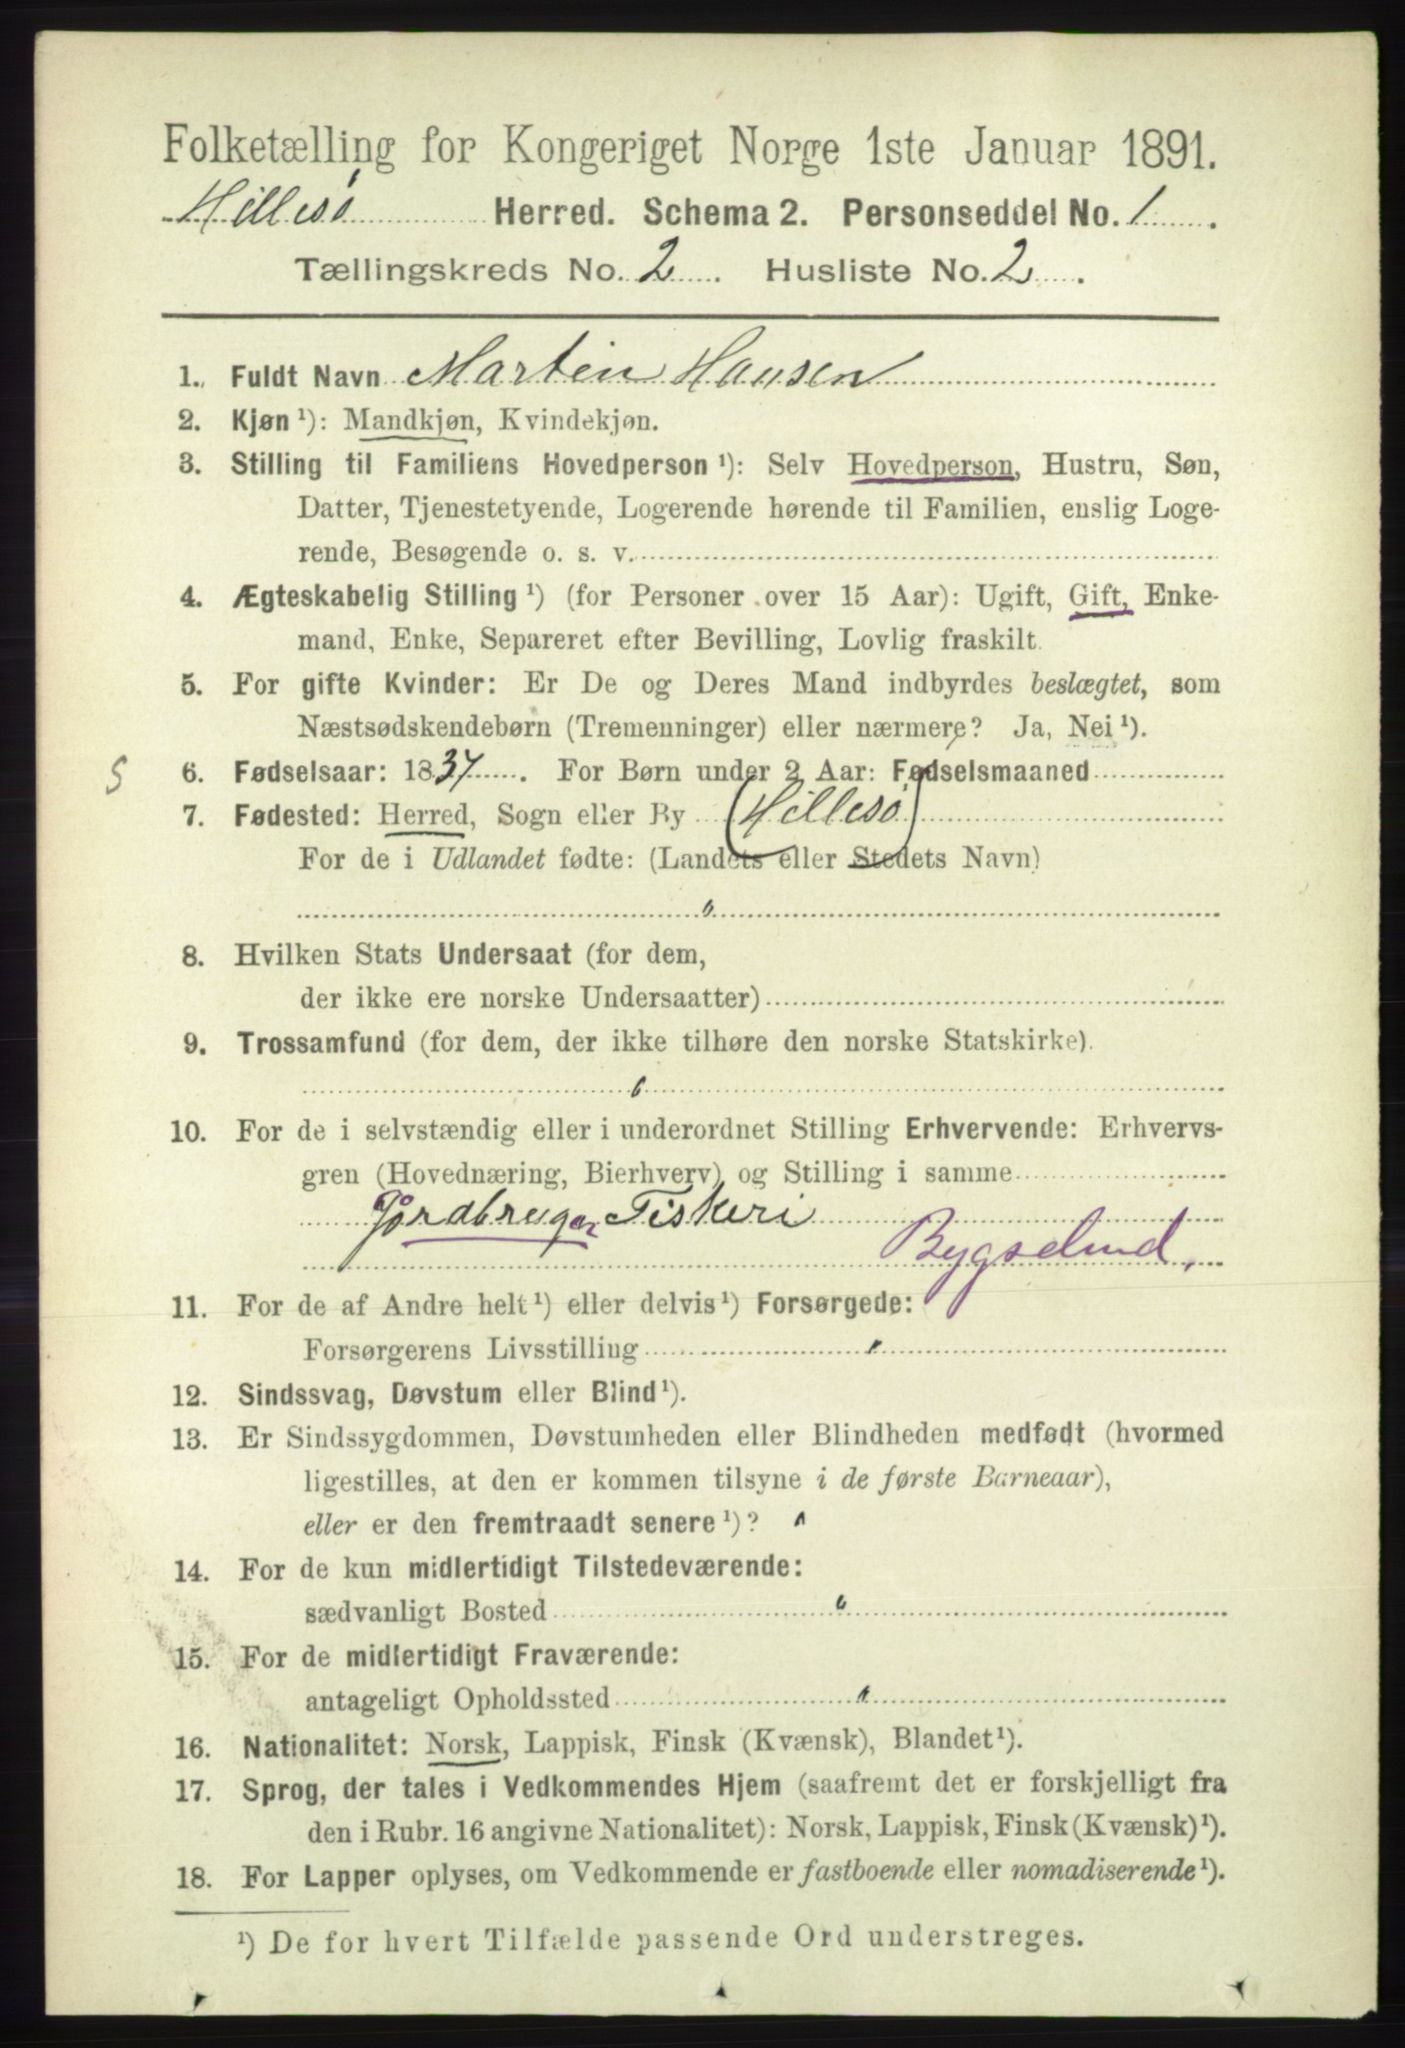 Folketælling for Kongeriget Norge 1ste Januar 1891.
Hillesø Herred. Schema 2. Personseddel No. 1.
Tællingskreds No. 2. Husliste No. 2.
1. Fuldt Navn Martin Hansen
2. Kjøn ¹): Mandkjøn, Kvindekjøn.
3. Stilling til Familiens Hovedperson ¹): Selv Hovedperson, Hustru, Søn,
Datter, Tjenestetyende, Logerende hørende til Familien, enslig Loge-
rende, Besøgende o. s. v.
4. Ægteskabelig Stilling ¹) (for Personer over 15 Aar): Ugift, Gift, Enke-
mand, Enke, Separeret efter Bevilling, Lovlig fraskilt.
5. For gifte Kvinder: Er De og Deres Mand indbyrdes beslægtet, som
Næstsødskendebørn (Tremenninger) eller nærmere? Ja, Nei ¹).
5 6. Fødselsaar: 1837. For Børn under 2 Aar: Fødselsmaaned
7. Fødested: Herred, Sogn eller By (Hillesø)
For de i Udlandet fødte: (Landets eller Stedets Navn)
8. Hvilken Stats Undersaat (for dem,
der ikke ere norske Undersaatter)
9. Trossamfund (for dem, der ikke tilhøre den norske Statskirke).
10. For de i selvstændig eller i underordnet Stilling Erhvervende: Erhvervs-
gren (Hovednæring, Bierhverv) og Stilling i samme
Jordbruger Fiskeri
Bygselmd,
11. For de af Andre helt ¹) eller delvis ¹) Forsørgede:
Forsørgerens Livsstilling
12. Sindssvag, Døvstum eller Blind ¹).
13. Er Sindssygdommen, Døvstumheden eller Blindheden medfødt (hvormed
ligestilles, at den er kommen tilsyne i de første Barneaar),
eller er den fremtraadt senere ¹)?
14. For de kun midlertidigt Tilstedeværende:
sædvanligt Bosted
15. For de midlertidigt Fraværende:
antageligt Opholdssted
16. Nationalitet: Norsk, Lappisk, Finsk (Kvænsk), Blandet ¹).
17. Sprog, der tales i Vedkommendes Hjem (saafremt det er forskjelligt fra
den i Rubr. 16 angivne Nationalitet): Norsk, Lappisk, Finsk (Kvænsk) ¹).
18. For Lapper oplyses, om Vedkommende er fastboende eller nomadiserende ¹).
¹) De for hvert Tilfælde passende Ord understreges.